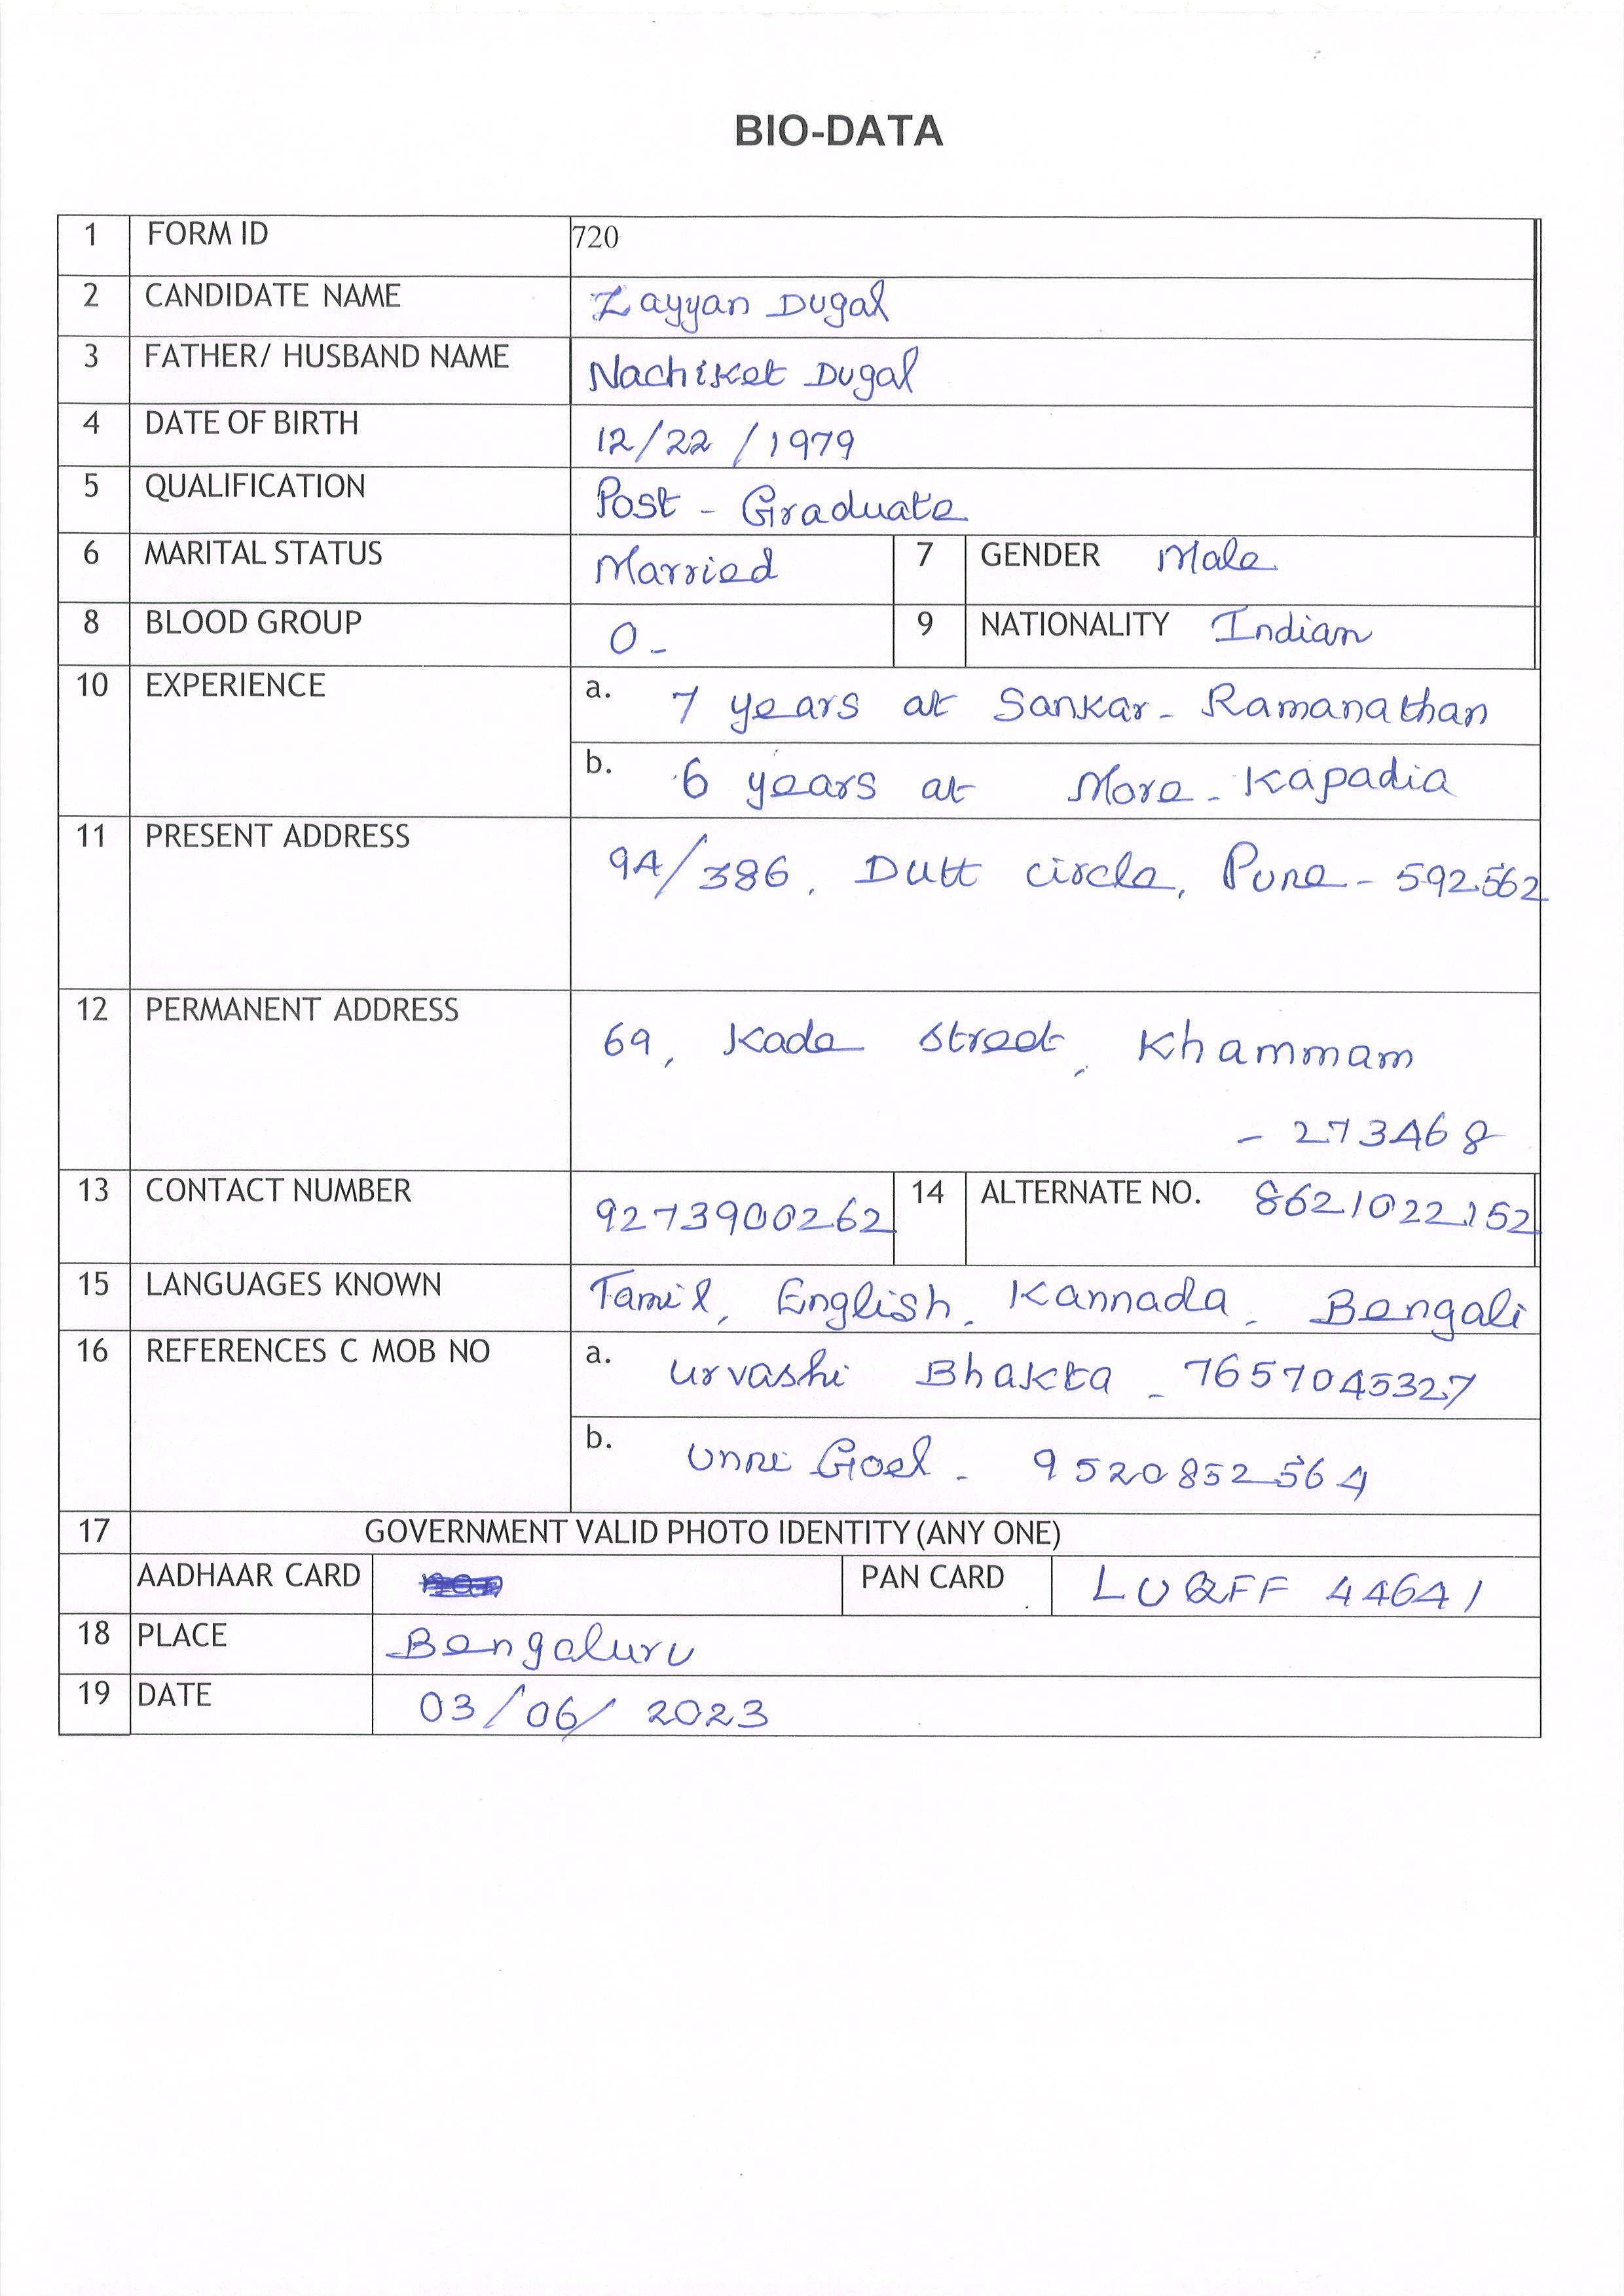 BIO-DATA
1 FORM ID 720
2 CANDIDATE NAME Zayyan Dugal
3 FATHER/ HUSBAND NAME Nachiket Dugal
4 DATE OF BIRTH 12/22/1979
5 QUALIFICATION Post - Graduate
6 MARITAL STATUS Married 7 GENDER Male
8 BLOOD GROUP O- 9 NATIONALITY Indian
10 EXPERIENCE a. 7 years at Sankar- Ramanathan
b. 6 years at More- Kapadia
11 PRESENT ADDRESS 9A/386, Dutt circle, Pune - 592562
12 PERMANENT ADDRESS 69, Kade Street, Khammam
- 273468
13 CONTACT NUMBER 9273900262 14 ALTERNATE NO. 8621022152
15 LANGUAGES KNOWN Tamil, English, Kannada, Bengali
16 REFERENCES C MOB NO a. Urvashi Bhakta - 7657045327
b. Unni Goel - 9520852564
17 GOVERNMENT VALID PHOTO IDENTITY (ANY ONE)
AADHAAR CARD PAN CARD LUQFF 44641
18 PLACE Bengaluru
19 DATE 03/06/2023